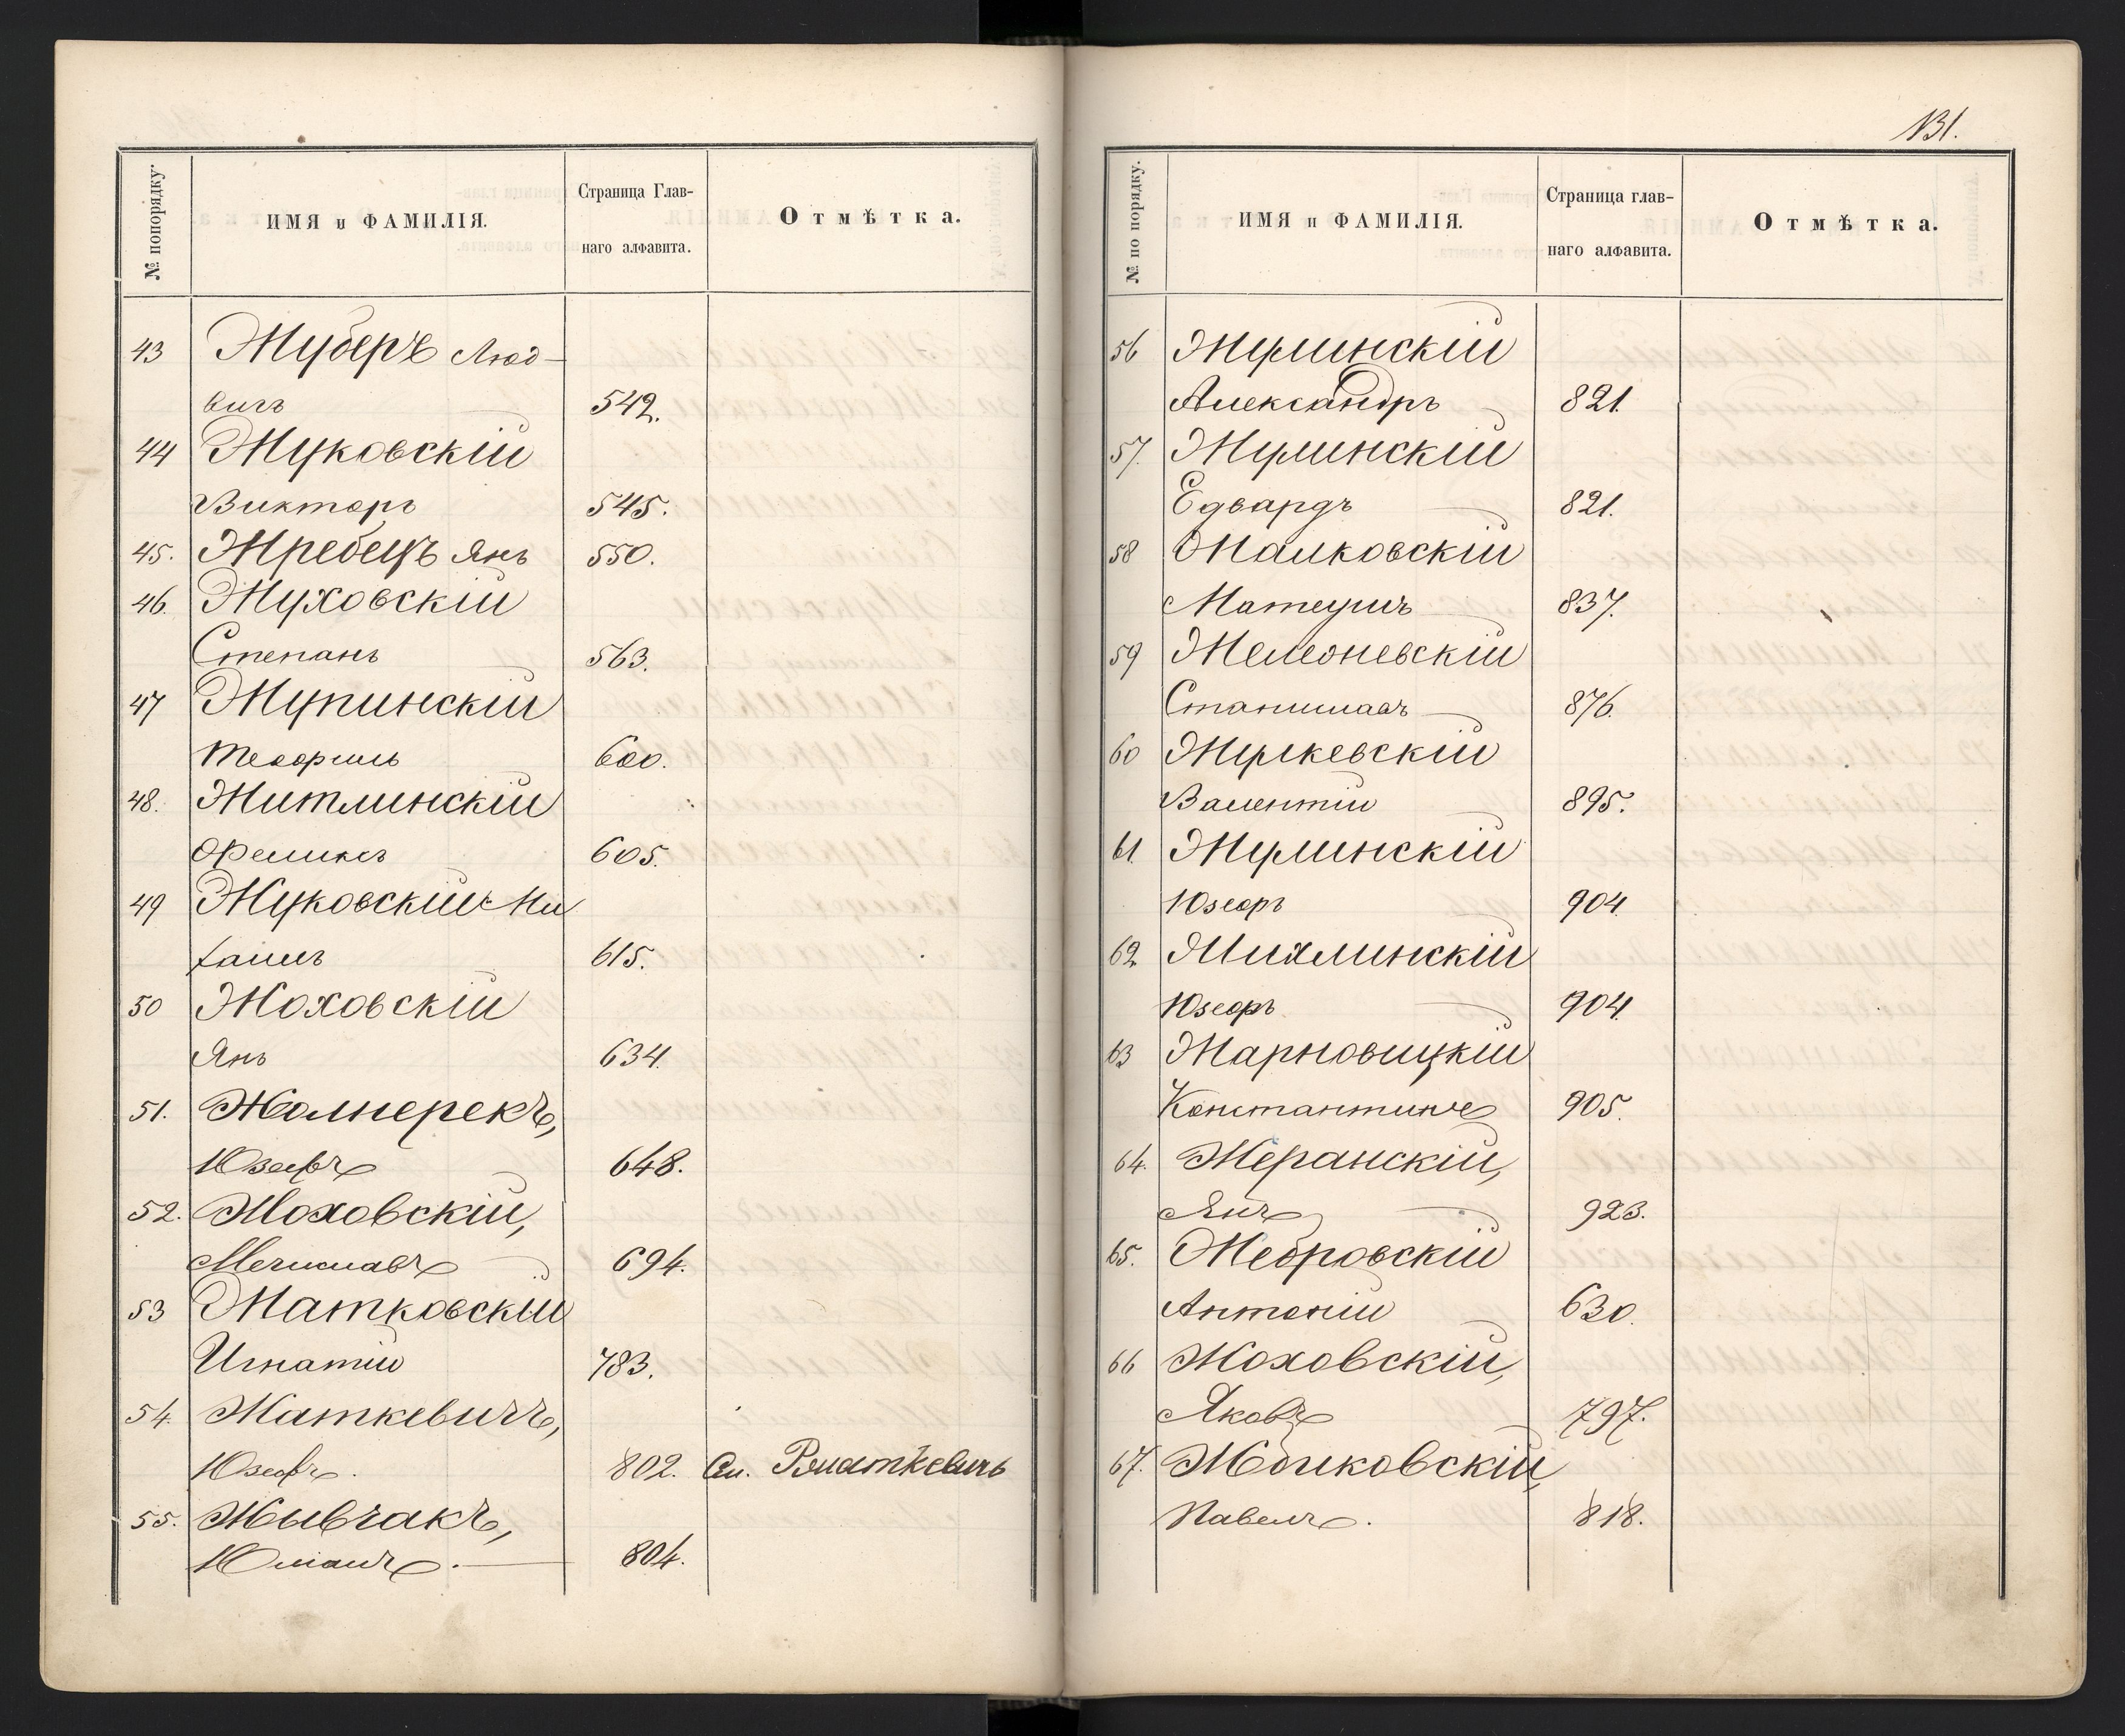 № попорядку.
ИМЯ и ФАМИЛІЯ.
Страница Глав-
наго алфавита.
Отмѣтка.
43 Жуберъ Люд-
вигъ 542.
44 Жуковскій
Викторъ 545.
45. Жребецъ Янъ 550.
46. Жуховскій
Степанъ 563.
47 Жупинскій
Теофиль 600.
48. Житлинскій
605.
49 Жуковскій Ми
хаилъ 615.
50 Жоховскій
Янъ 634.
51. Жолнерекъ,
Юзефъ 648.
52. Жоховскій,
Мечиславъ 694.
53 Жатковскій
Игнатій 783.
54. Жаткевичъ,
Юзефъ. 802. См.
55. Жывчакъ,
804.
131.
№ по порядку.
ИМЯ и ФАМИЛІЯ.
Страница глав-
наго алфавита.
Отмѣтка.
56 Жулинскій
Александръ 821.
57. Жулинскій
Едвардъ 821.
58 Жалковскій
Матеушъ 837.
59
Станиславъ 876.
60
Валентій 895.
61. Жулинскій
Юзефъ 904.
62 Жихлинскій
Юзефъ 904.
63 Жарновицкій
Константинъ 905.
64. Жеранскій,
Янъ 923.
65. Жебровскій
Антоній 630.
66 Жоховскій,
Яковъ 797.
67. Жбиковскій,
Павелъ. 818.